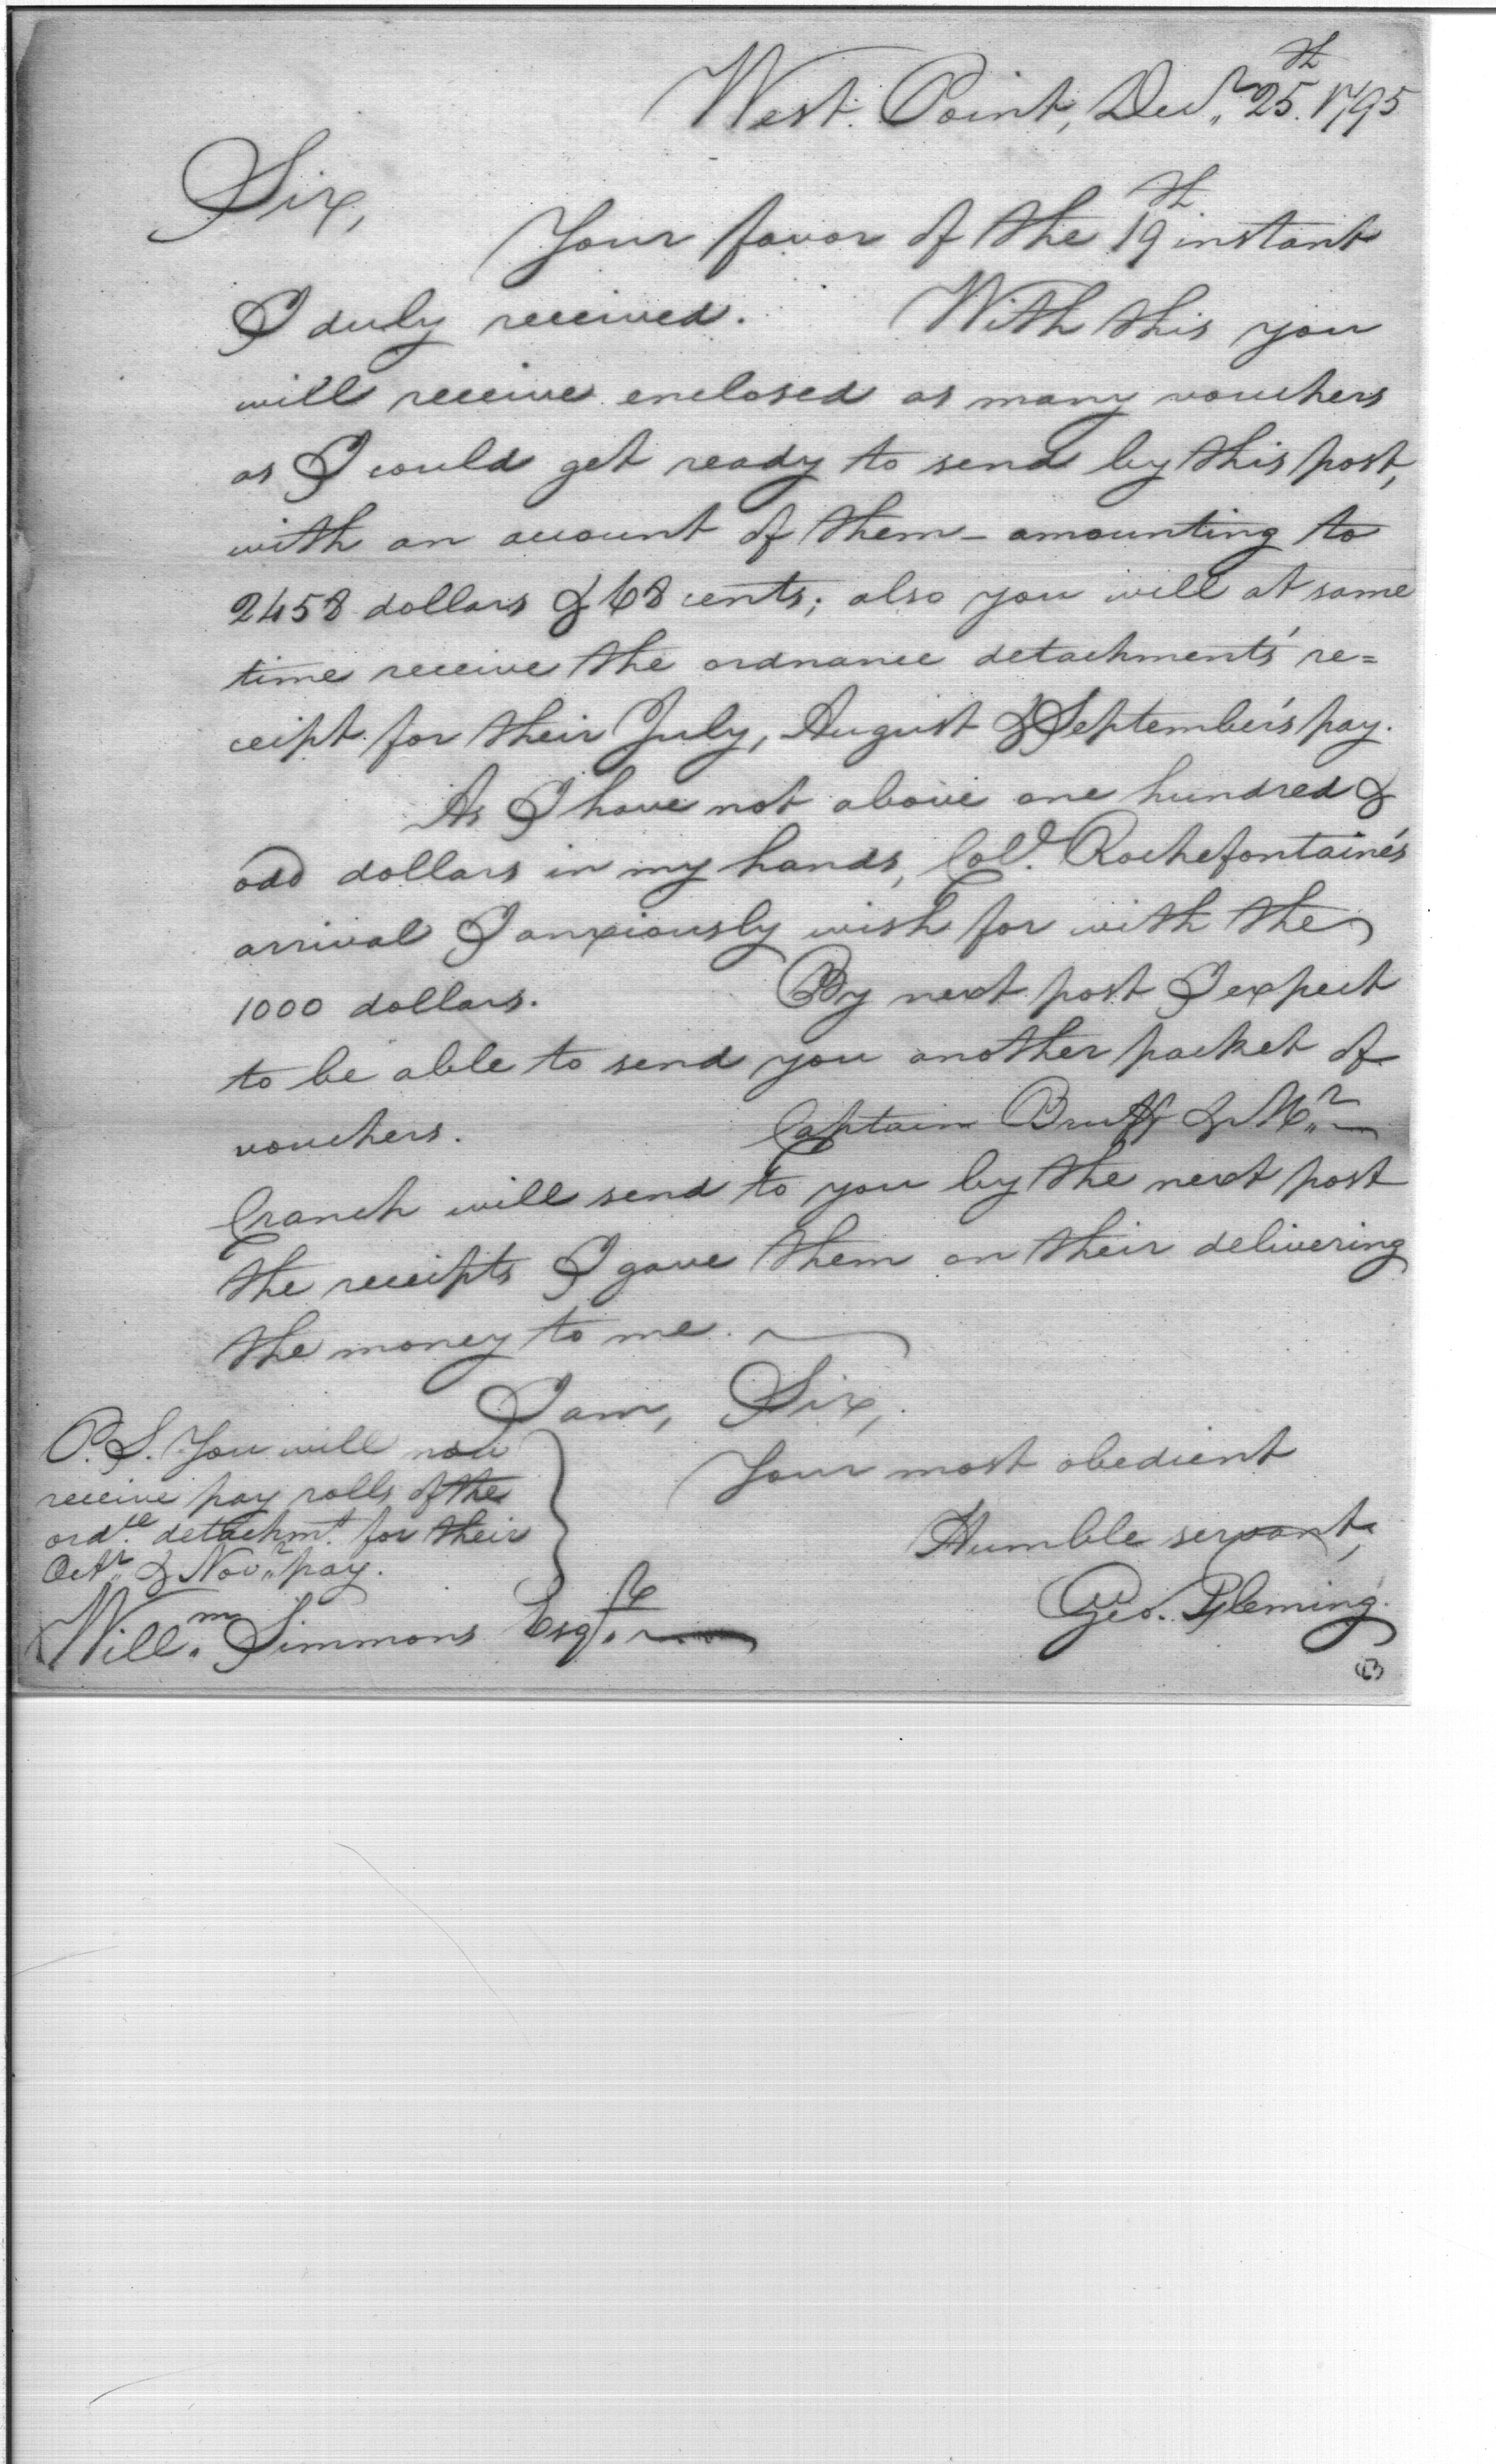 West Point, Decr. 25th. 1795
Sir,
Your favor of the 19th instant
I duly received. With this you
will receive enclosed as many vouchers
as I could get ready to send by this post,
with an account of them – amounting to
2458 dollars & 68 cents; also you will at same
time receive the ordnance detachment's re=
ceipt for their July, August & September's pay.
As I have not above one hundred &
odd dollars in my hands, Col. Rochefontaine's
arrival I anxiously wish for with the
1000 dollars. By next post I expect
to be able to send you another packet of
vouchers. Captain Bruff & Mr.
Cranch will send to you by the next post
the receipts I gave them on their delivering
the money to me.
I am, Sir,
Your most obedient
Humble servant,
Geo. Fleming.
P.S. You will now
receive pay rolls of the
ordce. detachmt. for their
Octr. & Novr. pay.
Willm. Simmons Esqr.